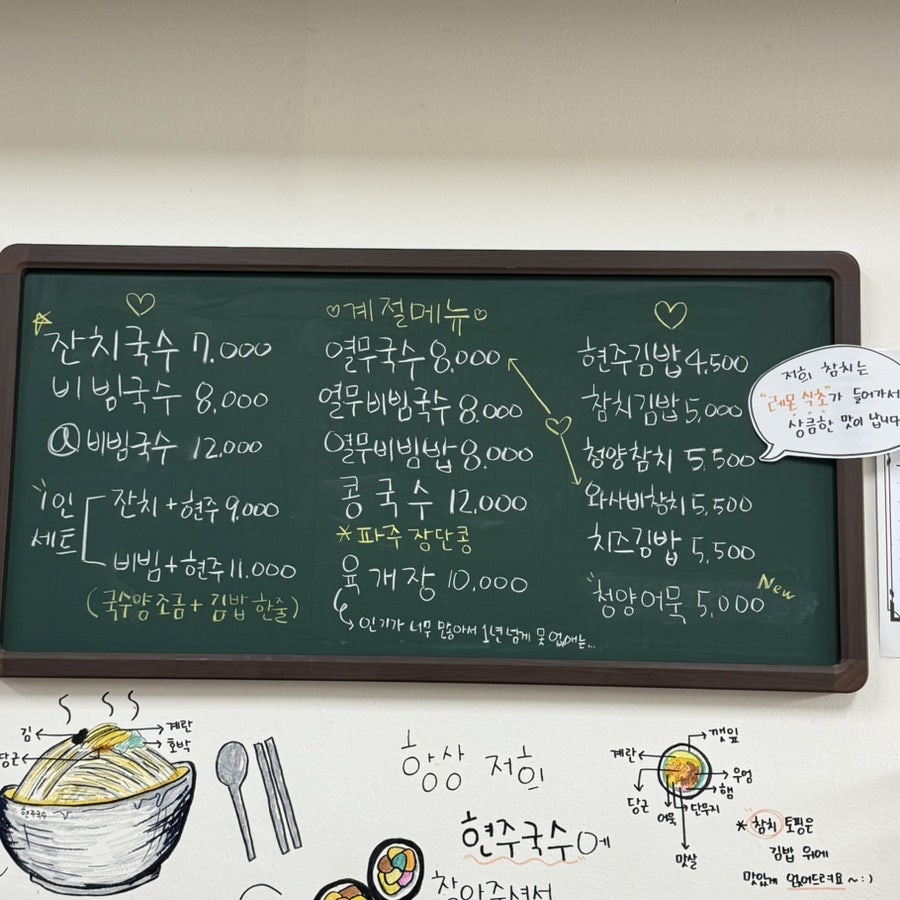 잔치국수 7.000
비빔국수 8.000
大 비빔국수 12.000
1인
세트
잔치+현주 9.000
비빔+현주 11.000
(국수양 조금 + 김밥 한줄)
계절메뉴
열무국수 8.000
열무비빔국수 8.000
열무비빔밥 8.000
콩국수 12.000
*파주 장단콩
육개장 10.000
인기가 너무 많아서 1년 넘게 못 없애는...
현주김밥 4.500
참치김밥 5,000
청양참치 5.500
와사비참치 5.500
치즈김밥 5,500
청양어묵 5,000
New
저희 참치는
"레몬 식초"가 들어가서
상큼한 맛이 납니다
김
당근
계란
호박
현주국수
항상 저희
현주국수에
찾아주셔서
계란
당근
어묵
맛살
깻잎
우엉
햄
단무지
*참치 토핑은
김밥 위에
맛있게 얹어드려요~:)